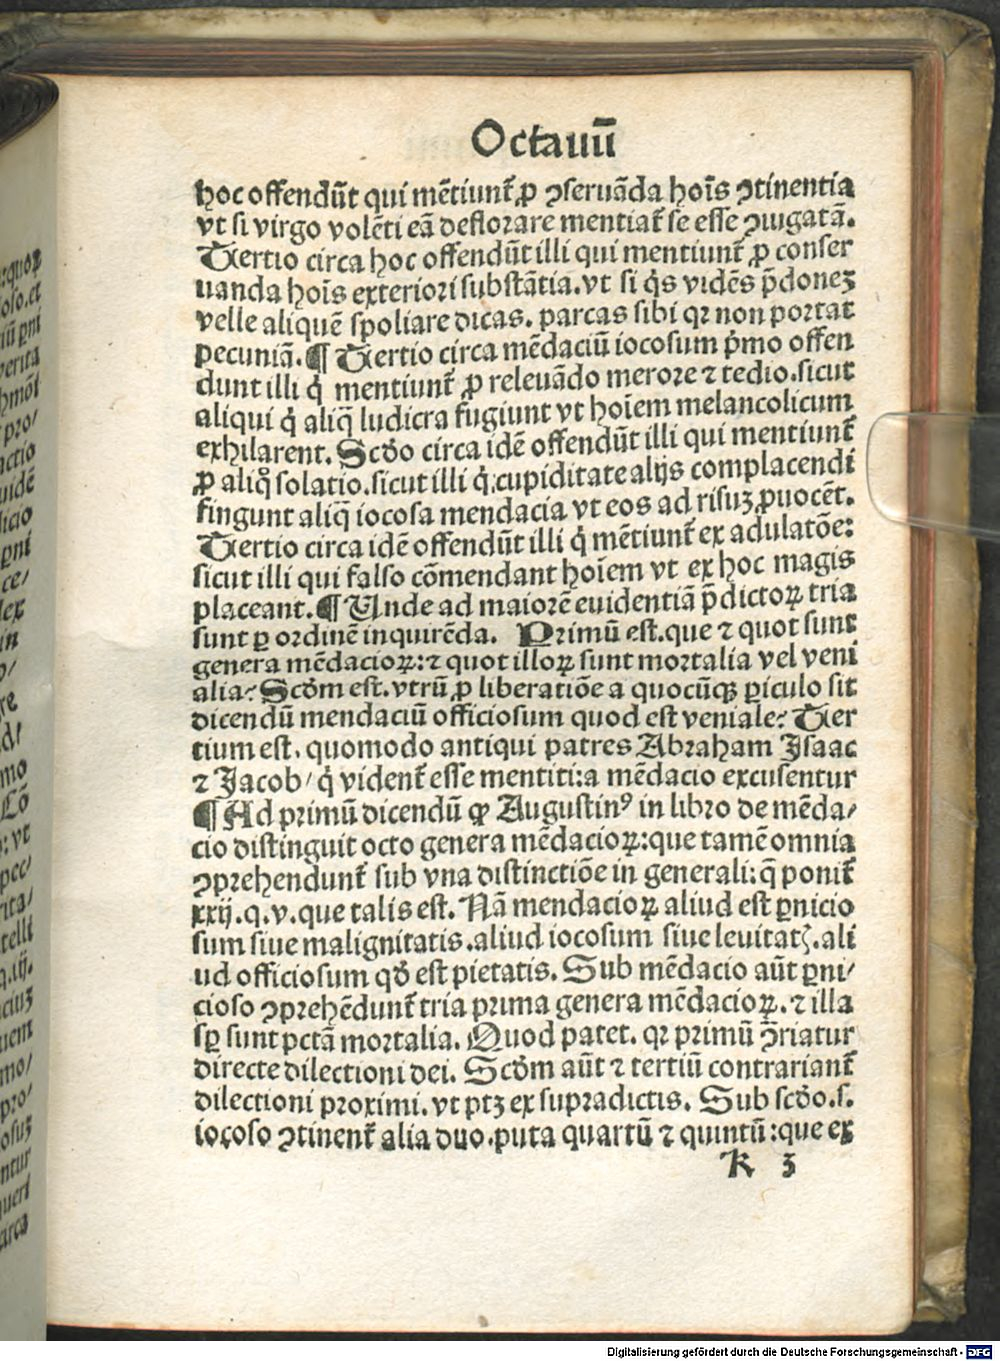 Octauū
hoc offendūt qui mētiunt̄ ꝓ ꝯseruāda hoīs ꝯtinentia
vt si virgo volēti eā deflorare mentiat̄ se esse ꝯiugatā.
Tertio circa hoc offendūt illi qui mentiunt̄ ꝓ conser
uanda hoīs exteriori substātia. vt si q̇s vidēs p̄donez
velle aliquē spoliare dicas. parcas sibi qꝛ non portat
pecuniā. ¶ Tertio circa mēdaciū iocosum pͥmo offen
dunt illi q̇ mentiunt̄ ꝓ releuādo merore ⁊ tedio. sicut
aliqui q̇ aliq̄ ludicra fīgiunt vt hoīem melancolicum
exhilarent. Scďo circa idē offendūt illi qui mentiunt̄
ꝓ aliqͦ solatio. sicut illi q̇ cupiditate alijs complacendi
fingunt aliq̄ iocosa mendacia vt eos ad risuꝫ ꝓuocēt.
Tertio circa idē offendūt illi q̇ mētiunt̄ ex adulatōe:
sicut illi qui falso cōmendant hoīem vt ex hoc magis
placeant. ¶ Unde ad maiorē euidentiā p̄dictoꝝ tria
sunt ꝑ ordinē inquirēda. Primū est. que ⁊ quot sunt
genera mēdacioꝝ: ⁊ quot illoꝝ sunt mortalia vel veni
alia? Scďm est. vtrū ꝓ liberatiōe a quocūqꝫ ꝑiculo sit
dicendū mendaciū officiosum quod est veniale? Ter
tium est. quomodo antiqui patres Abraham Isaac
⁊ Jacob / q̇ vident̄ esse mentiti: a mēdacio excusentur
¶ Ad primū dicendū ꝙ Augustinꝰ in libro de mēda/
cio distinguit octo genera mēdacioꝝ: que tamē omnia
ꝯprehendunt̄ sub vna distinctiōe in generali: q̄ ponit̄
xxij. q. v. que talis est. Nā mendacioꝝ aliud est ꝑnicio
sum siue malignitatis. aliud iocosum siue leuitatꝭ. ali
ud officiosum qď est pietatis. Sub mēdacio aūt ꝑni/
cioso ꝯprehēdunt̄ tria prima genera mēdacioꝝ. ⁊ illa
sꝑ sunt pctā mortalia. Quod patet. qꝛ primū ꝯ̄riatur
directe dilectioni dei. Scďm aūt ⁊ tertiū contrariant̄
dilectioni proximi. vt ptꝫ ex supradictis. Sub scďo. s.
iocoso ꝯtinent̄ alia duo. puta quartū ⁊ quintū: que ex
K 3
Digitalisierung gefördert durch die Deutsche Forschungsgemeinschaft - DFG